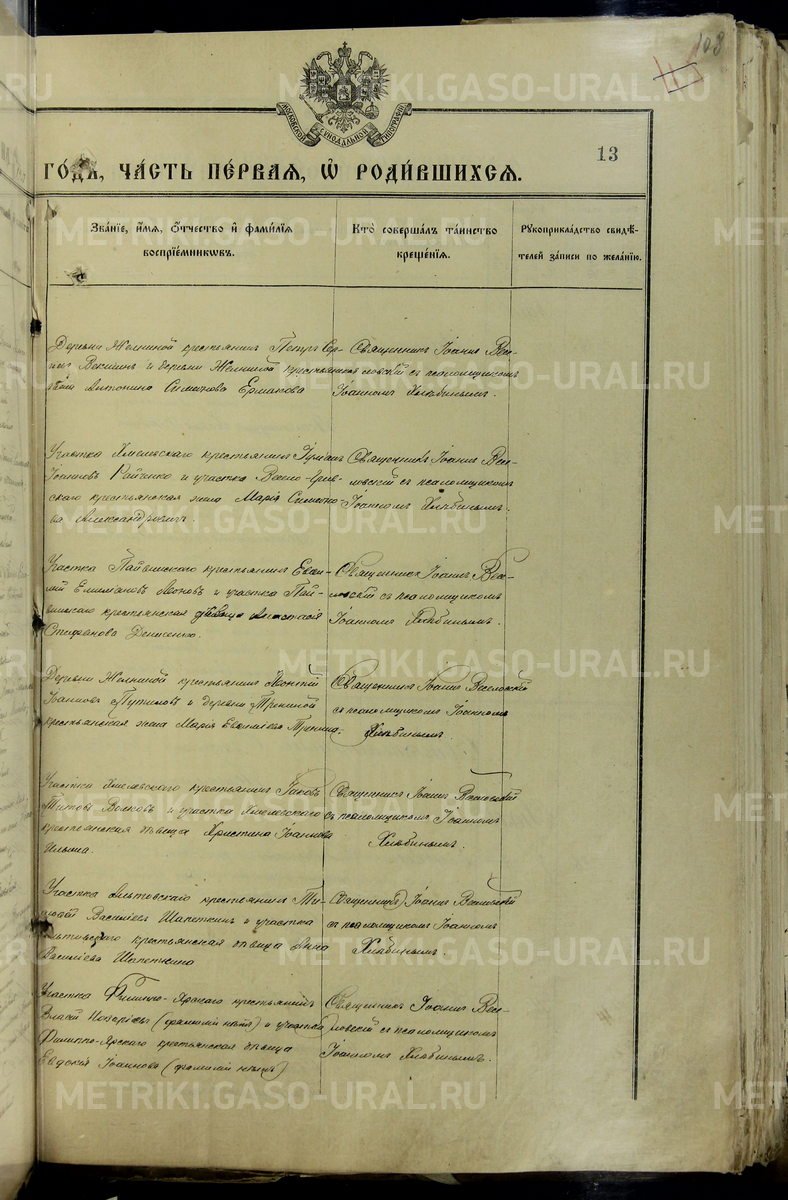 103
МОСКОВСКОЙ СѴНОДАЛЬНОЙ ТИПОГРАФІИ
13
ГО́ДЪ, ЧА́СТЬ ПЕ́РВАЯ, Ѡ҆ РОДИ́ВШИХСЯ.
Зва́нїе, и҆́мя, ѻ҆́тчество и҆ фами́лїя
воспрїе́мникѡвъ.
Кто̀ соверша́лъ та́инство
креще́нїя.
Рꙋкоприкла́дство свидѣ́-
телей за́писи по жела́нїю.
Деревни Жемниной крестьянинъ Петръ Сер-
Векшинъ и деревни Жемниной крестьянская
Антонина Симонова Ермакова
Священникъ Іоаннъ Вес-
ловскій съ псаломщикомъ
Іоанномъ Хлѣбинымъ.
Участка Хмелевскаго крестьянинъ
Іоанновъ Райченко и участка
скаго крестьянская жена Марія
ва Александровичъ.
Священникъ Іоаннъ Вес-
ловскій съ псаломщикомъ
Іоанномъ Хлѣбинымъ.
Участка крестьянинъ Евѳи-
мій Емиліановъ Леоновъ и участка Пай-
крестьянская дѣвица Анастасія
Стефанова Денисенко.
Священникъ Іоаннъ Вес-
ловскій съ псаломщикомъ
Іоанномъ Хлѣбинымъ.
Деревни Жемниной крестьянинъ
Іоанновъ Путиловъ и деревни Трениной
крестьянская жена Марія Евѳиміева Тренина.
Священникъ Іоаннъ Веселовскій
съ псаломщикомъ Іоанномъ
Хлѣбинымъ.
Участка Хмелевскаго крестьянинъ Іаковъ
Титовъ Волковъ и участка Хмелевскаго
крестьянская дѣвица Христина Іоаннова
Ильина.
Священникъ Іоаннъ Веселовскій
съ псаломщикомъ Іоанномъ
Хлѣбинымъ.
Участка крестьянинъ Ти-
моѳей Василіевъ Шапеткинъ и участка
крестьянская дѣвица Анна
Василіева Шапеткина
Священникъ Іоаннъ Веселовскій
съ псаломщикомъ Іоанномъ
Хлѣбинымъ.
Участка Филиппо-Ярскаго крестьянинъ
Власій Назарьевъ (фамиліи нѣтъ) и участка
Филиппо-Ярскаго крестьянская дѣвица
Евдокія Іоаннова (фамиліи нѣтъ)
Священникъ Іоаннъ Вес-
ловскій съ псаломщикомъ
Іоанномъ Хлѣбинымъ.
METRIKI.GASO-URAL.RU